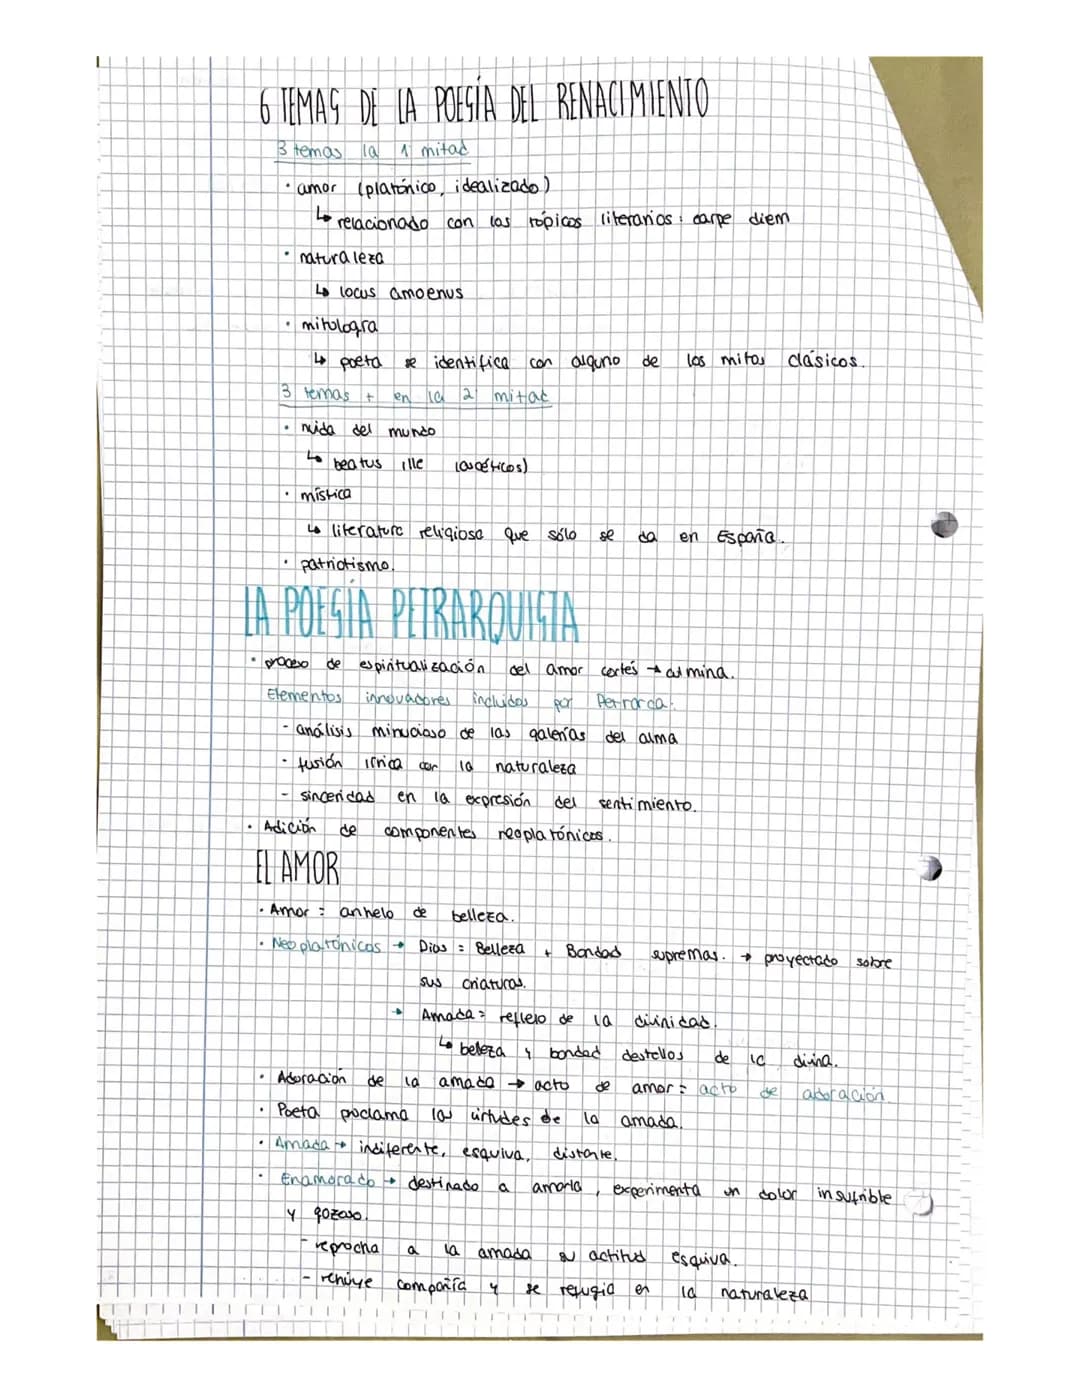 6 TEMAS DE LA POESÍA DEL RENACIMIENTO
3 temas la 1ª mitad
· amor (platónico, idealizado)
↳ relacionado con los tópicos literarios: carpe diem
· naturaleza
↳ locus amoenus
· mitología
↳ poeta se identifica con alguno de los mitos clásicos.
3 temas + en la 2ª mitad
· huida del mundo
↳ beatus ille (ascéticos)
· mística
↳ literatura religiosa que sólo se da en España.
· patriotismo.
LA POESÍA PETRARQUISTA
· proceso de espiritualización del amor cortés → culmina.
Elementos innovadores incluidos por Petrarca:
- análisis minucioso de las galerías del alma
- fusión lírica con la naturaleza
- sinceridad en la expresión del sentimiento.
· Adición de componentes neoplatónicos.
EL AMOR
· Amor = anhelo de belleza.
· Neoplatónicos → Dios = Belleza + Bondad supremas. → proyectado sobre
sus criaturas.
→ Amada = reflejo de la divinidad.
↳ belleza y bondad destellos de la divina.
· Adoración de la amada → acto de amor = acto de adoración.
· Poeta proclama las virtudes de la amada.
· Amada → indiferente, esquiva, distante.
· Enamorado → destinado a amarla, experimenta un dolor insufrible
y gozoso.
- reprocha a la amada su actitud esquiva.
- rehúye compañía y se refugia en la naturaleza